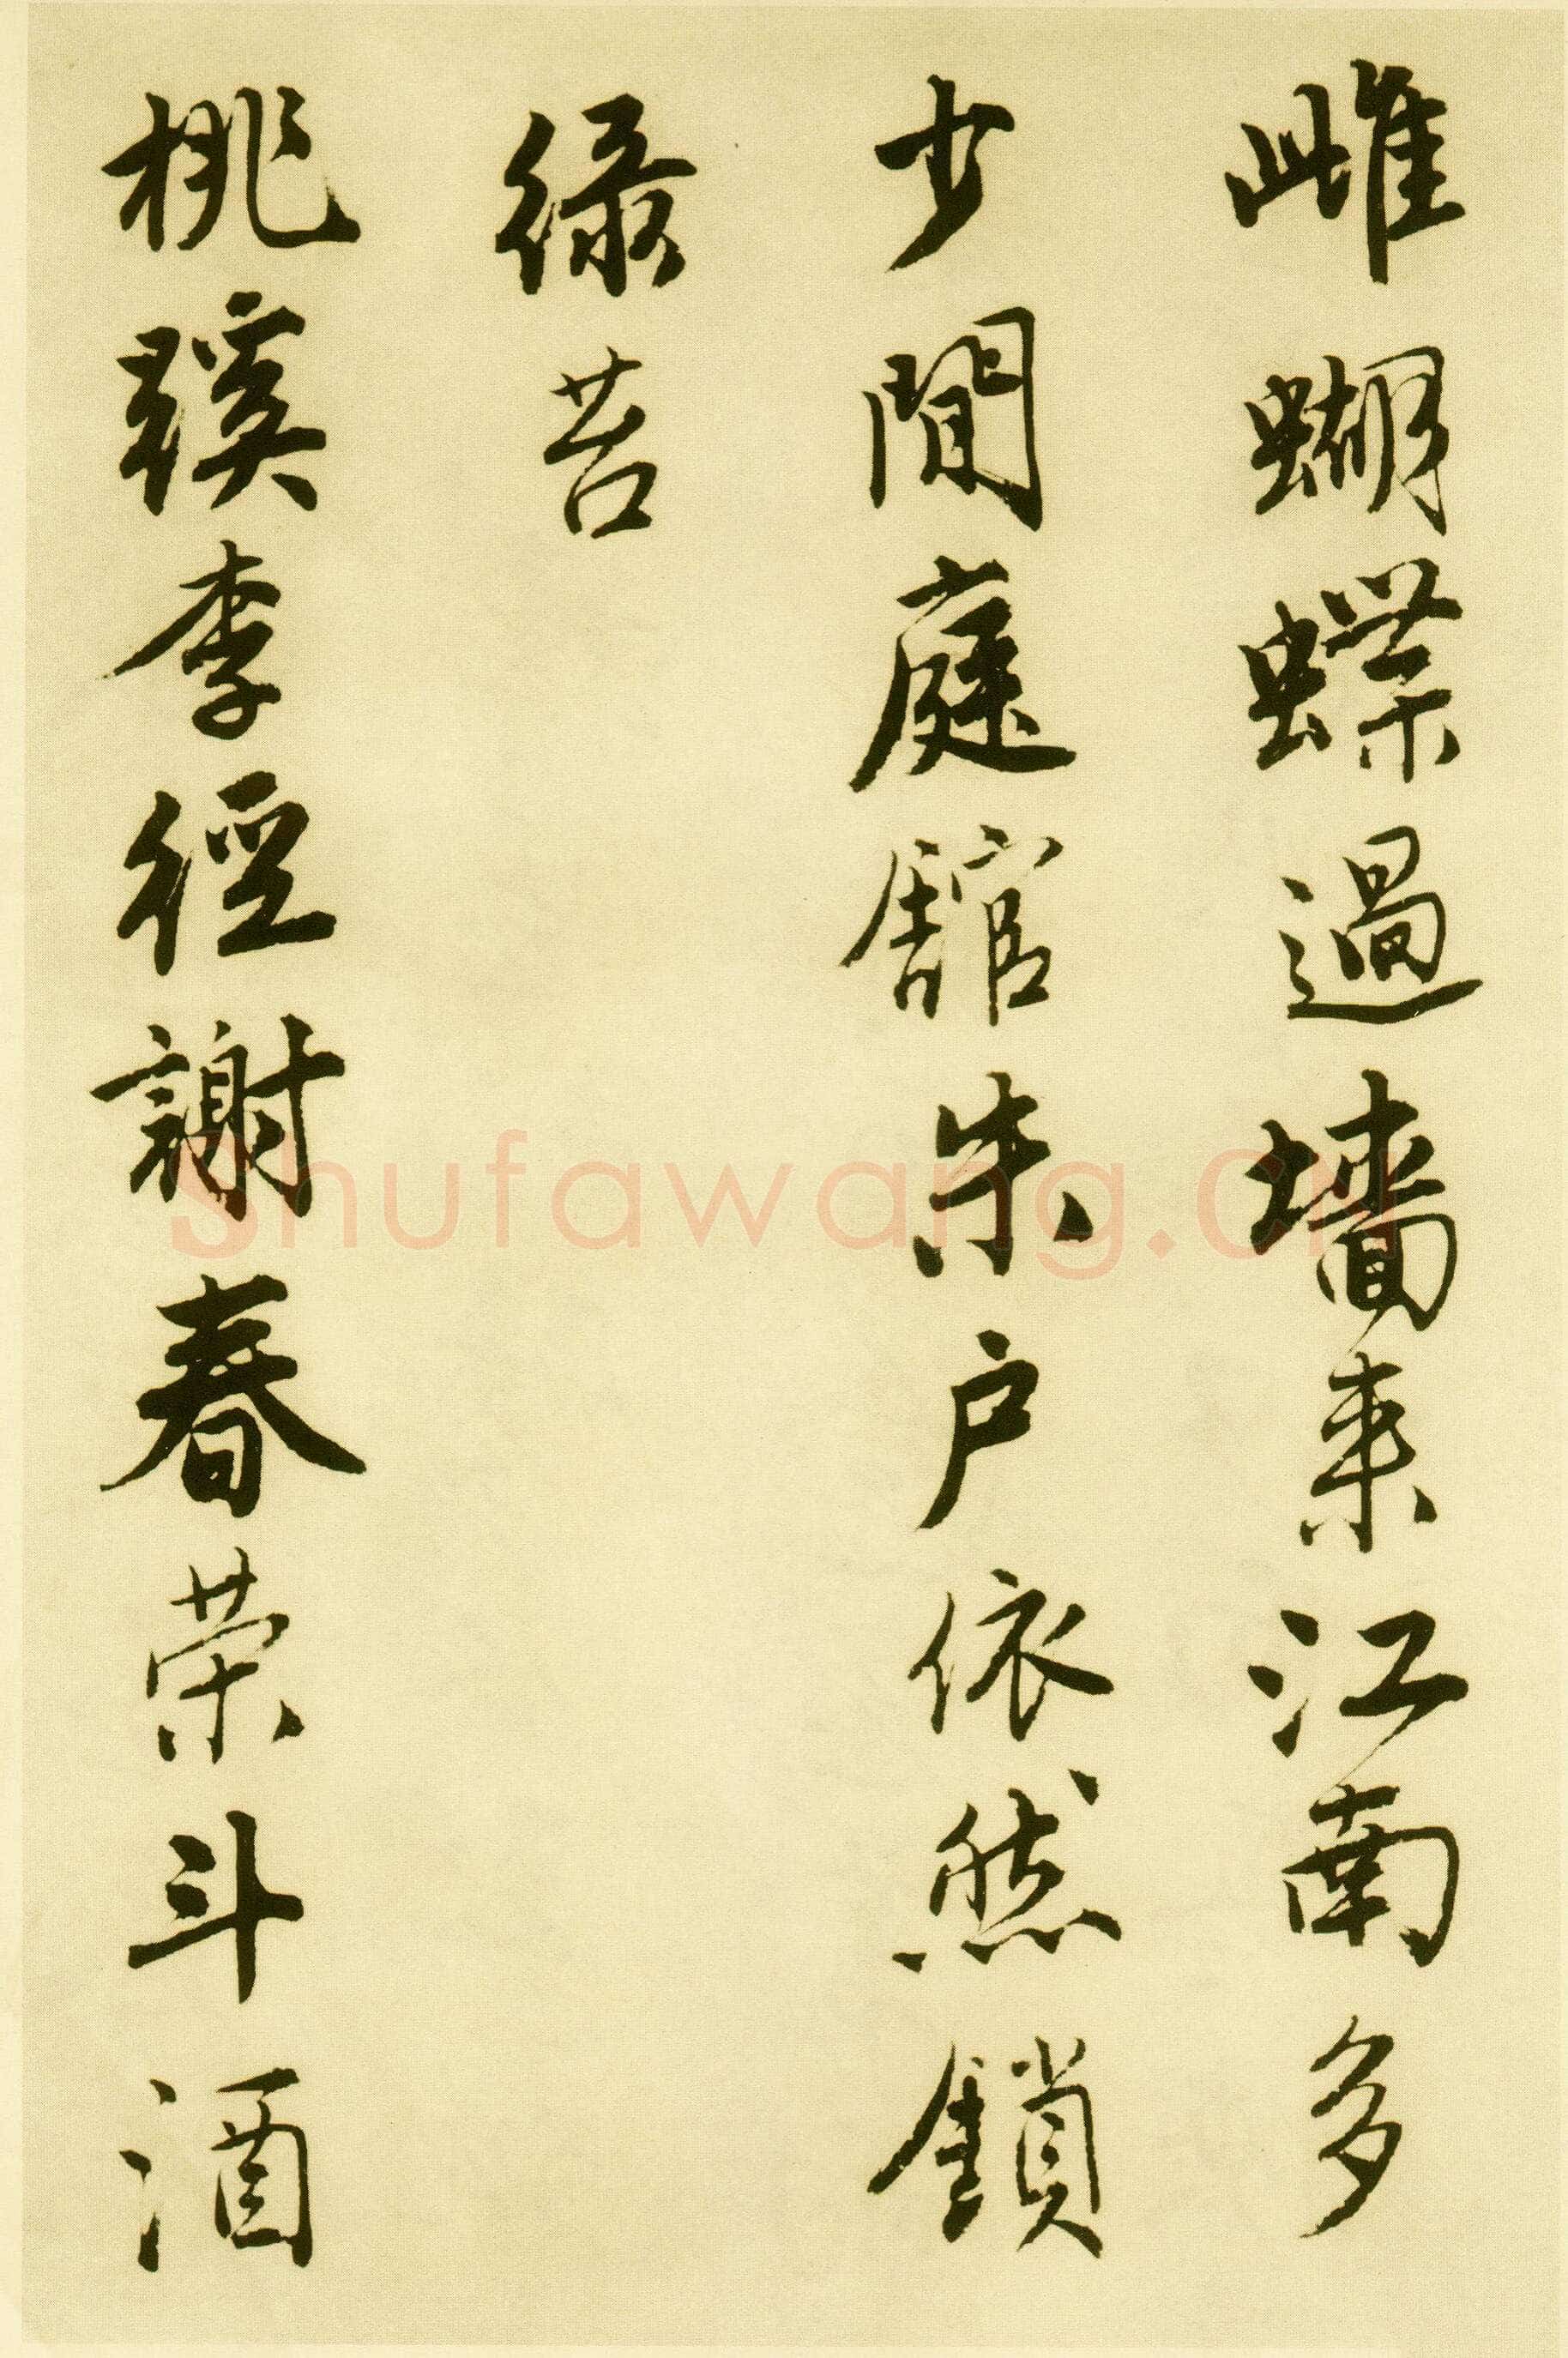 雌蝴蝶過墻来江南多
少閒庭館朱户依然鎖
緑苔
桃蹊李徑謝春荣斗酒
shufawang.cn